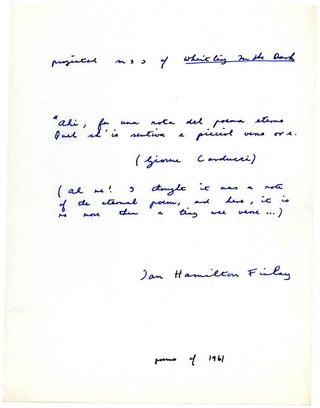 projected mss of Whistling in the Dark
"Ahi, fu una nota del poema eterno
Quel ch'io sentiva e picciol verso or è.
(Giosue Carducci)
(Ah me! I thought it was a note
of the eternal poem, and here, it is
no more than a tiny wee verse ...)
Ian Hamilton Finlay
poems of 1961